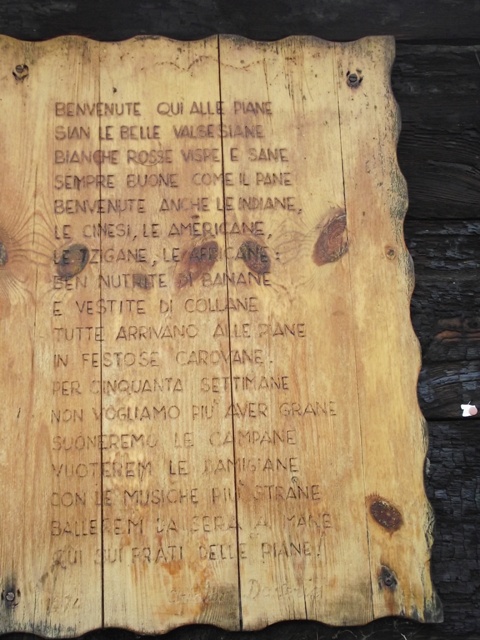 BENVENUTE QUI ALLE PIANE
SIAN LE BELLE VALSESIANE
BIANCHE ROSSE VISPE E SANE
SEMPRE BUONE COME IL PANE
BENVENUTE ANCHE LE INDIANE,
LE CINESI, LE AMERICANE,
LE TZIGANE, LE AFRICANE:
BEN NUTRITE DI BANANE
E VESTITE DI COLLANE
TUTTE ARRIVANO ALLE PIANE
IN FESTOSE CAROVANE.
PER CINQUANTA SETTIMANE
NON VOGLIAMO PIU' AVER GRANE
SUONEREMO LE CAMPANE
VUOTEREM LE DAMIGIANE
CON LE MUSICHE PIU' STRANE
BALLEREM DA SERA A MANE
QUI SUI PRATI DELLE PIANE!